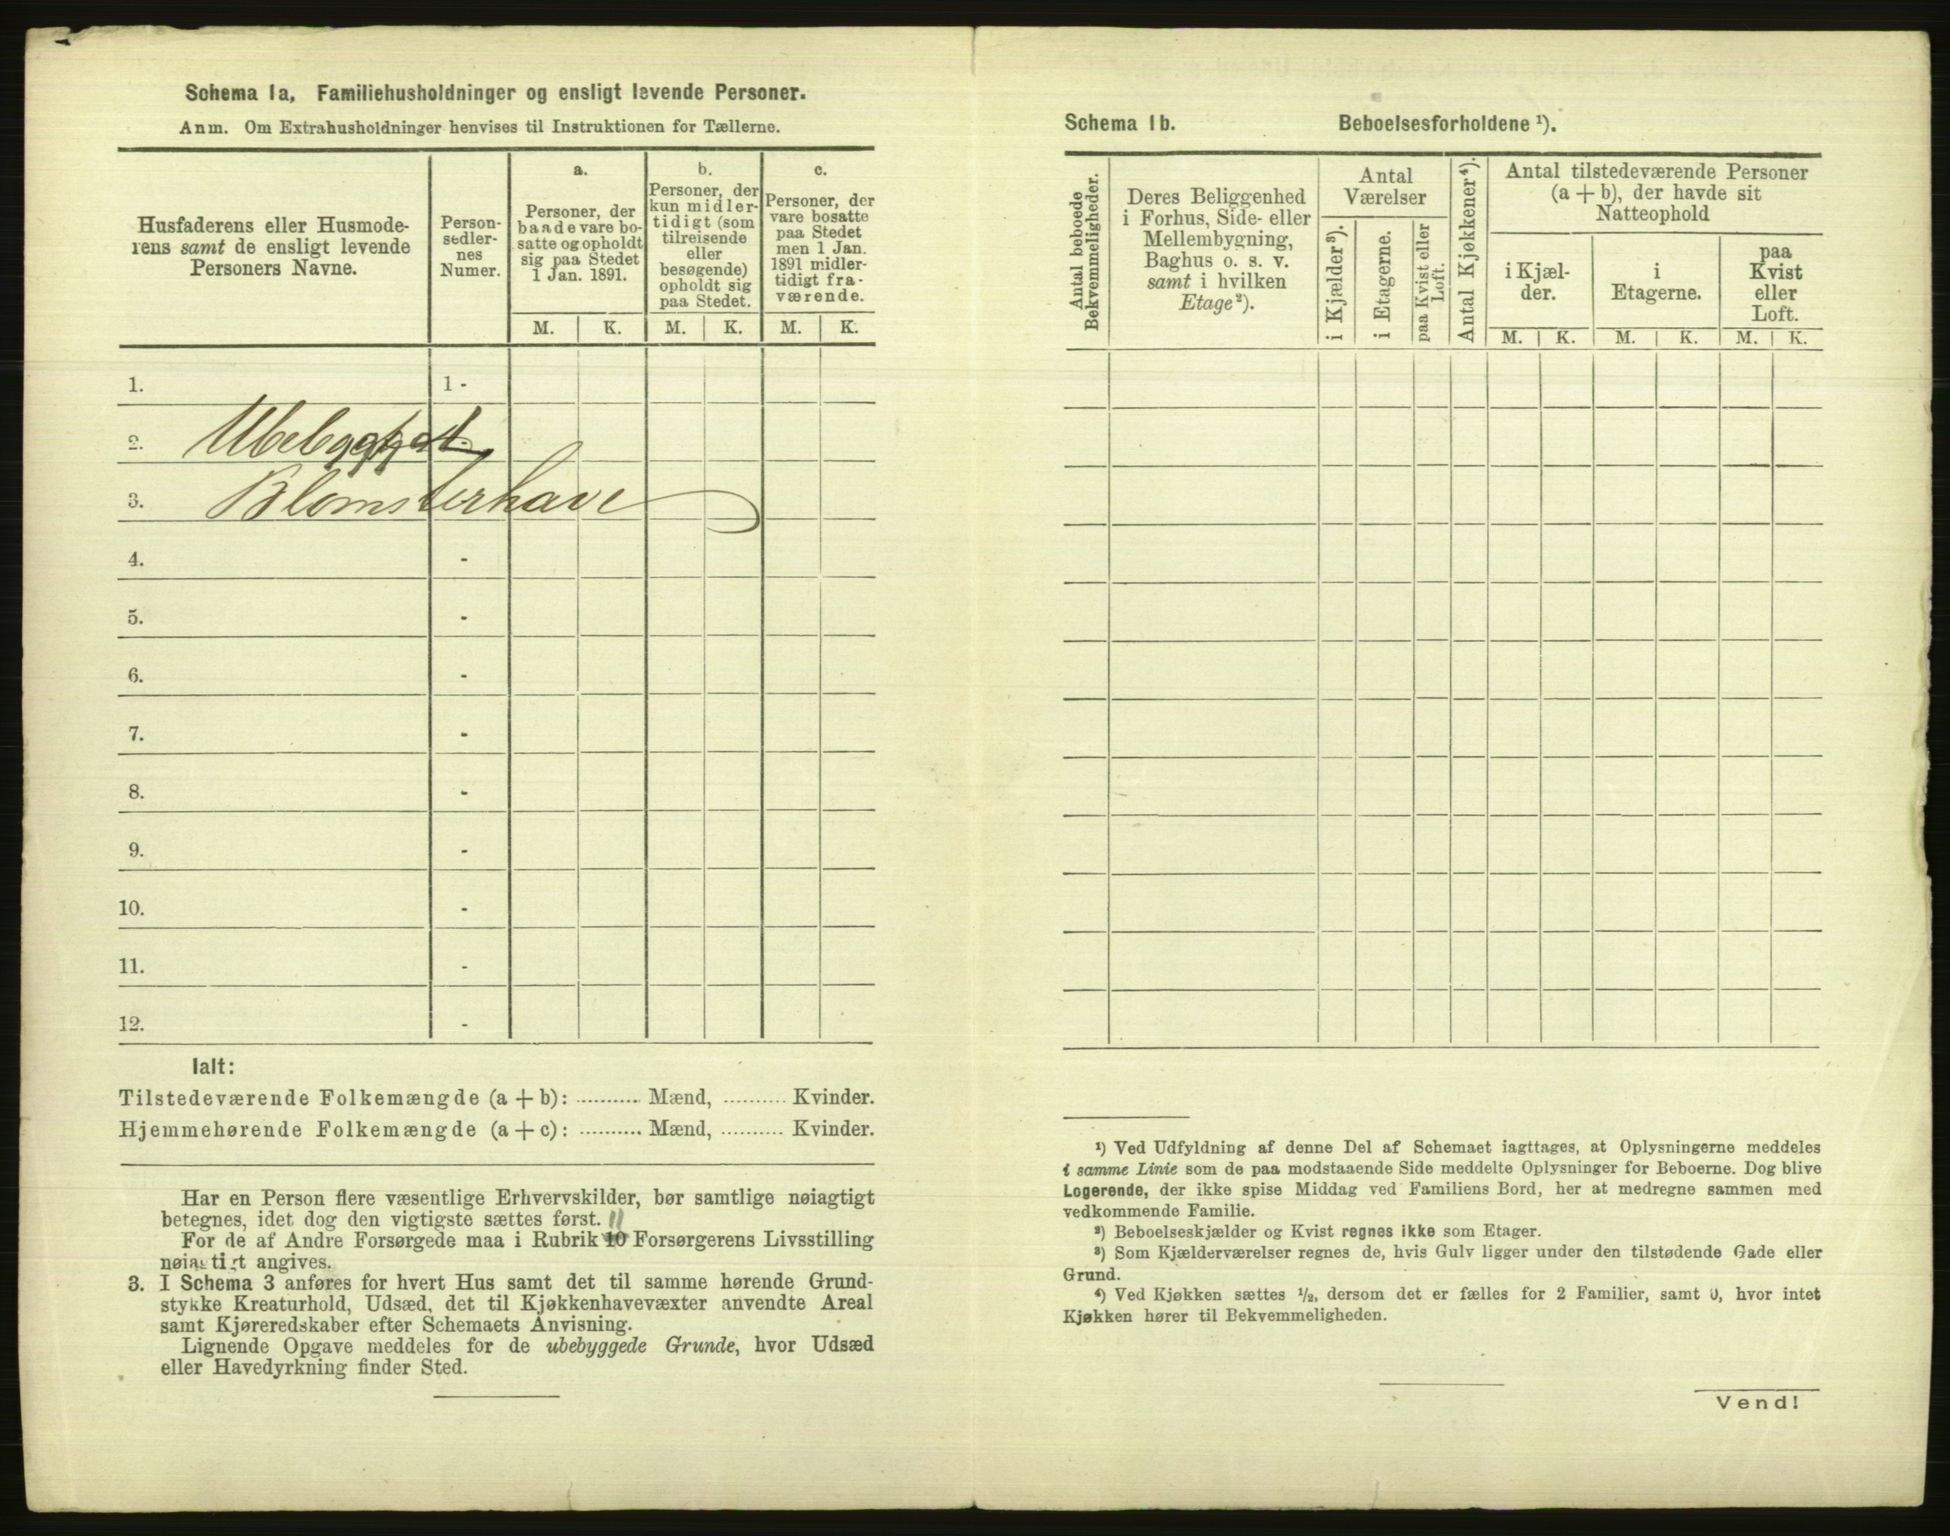 Schema 1a, Familiehusholdninger og ensligt levende Personer.
Anm. Om Extrahusholdninger henvises til Instruktionen for Tællerne.
Husfaderens eller Husmode-
rens samt de ensligt levende
Personers Navne.
Person-
sedler-
nes
Numer.
a.
Personer, der
baade vare bo-
satte og opholdt
sig paa Stedet
1 Jan. 1891.
b.
Personer, der
kun midler-
tidigt (som
tilreisende
eller
besøgende)
opholdt sig
paa Stedet.
c.
Personer, der
vare bosatte
paa Stedet
men 1 Jan.
1891 midler-
tidigt fra-
værende.
M. K. M. K. M. K.
1. 1 -
2. Ubebygget
3. Blomsterhave
4. -
5. -
6. -
7. -
8. -
9. -
10. -
11. -
12. -
Ialt:
Tilstedeværende Folkemængde (a + b): .......... Mænd, .......... Kvinder.
Hjemmehørende Folkemængde (a + c): .......... Mænd, .......... Kvinder.
Har en Person flere væsentlige Erhvervskilder, bør samtlige nøiagtigt
betegnes, idet dog den vigtigste sættes først.
11
For de af Andre Forsørgede maa i Rubrik 10 Forsørgerens Livsstilling
nøiagtigt angives.
3. I Schema 3 anføres for hvert Hus samt det til samme hørende Grund-
stykke Kreaturhold, Udsæd, det til Kjøkkenhavevæxter anvendte Areal
samt Kjøreredskaber efter Schemaets Anvisning.
Lignende Opgave meddeles for de ubebyggede Grunde, hvor Udsæd
eller Havedyrkning finder Sted.
Schema 1b. Beboelsesforholdene ¹).
Antal beboede
Bekvemmeligheder.
Deres Beliggenhed
i Forhus, Side- eller
Mellembygning,
Baghus o. s. v.
samt i hvilken
Etage²).
Antal
Værelser
i Kjælder³).
i Etagerne.
paa Kvist eller
Loft.
Antal Kjøkkener⁴).
Antal tilstedeværende Personer
(a + b), der havde sit
Natteophold
i Kjæl-
der.
i
Etagerne.
paa
Kvist
eller
Loft.
M. K. M. K. M. K.
¹) Ved Udfyldning af denne Del af Schemaet iagttages, at Oplysningerne meddeles
i samme Linie som de paa modstaaende Side meddelte Oplysninger for Beboerne. Dog blive
Logerende, der ikke spise Middag ved Familiens Bord, her at medregne sammen med
vedkommende Familie.
²) Beboelseskjælder og Kvist regnes ikke som Etager.
³) Som Kjælderværelser regnes de, hvis Gulv ligger under den tilstødende Gade eller
Grund.
⁴) Ved Kjøkken sættes ¹/₂, dersom det er fælles for 2 Familier, samt 0, hvor intet
Kjøkken hører til Bekvemmeligheden.
Vend!